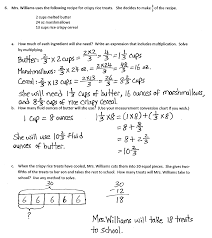 6. Mrs. Williams uses the following recipe for crispy rice treats. She decides to make 2/3 of the recipe.
2 cups melted butter
24 oz. marshmallows
13 cups rice crispy cereal
a. How much of each ingredient will she need? Write an expression that includes multiplication. Solve by multiplying.
Butter: 2/3 × 2 cups = 2×2/3 = 4/3 = 1 1/3 cups
Marshmallows: 2/3 × 24 oz. = 2×24/3 = 48/3 = 16 oz.
Cereal: 2/3 × 13 cups = 2×13/3 = 26/3 = 8 2/3 cups
She will need 1 1/3 cups of butter, 16 ounces of marshmallows,
and 8 2/3 cups of rice crispy cereal.
b. How many fluid ounces of butter will she use? (Use your measurement conversion chart if you wish.)
1 cup = 8 ounces
1 1/3 × 8 = (1×8) + (1/3×8)
= 8 + 8/3
= 8 + 2 2/3
= 10 2/3
She will use 10 2/3 fluid
ounces of butter.
c. When the crispy rice treats have cooled, Mrs. Williams cuts them into 30 equal pieces. She gives two-
fifths of the treats to her son and takes the rest to school. How many treats will Mrs. Williams take to
school? Use any method to solve.
30
6 6 6 6 6
?
30
- 12
18
Mrs. Williams will take 18 treats
to school.